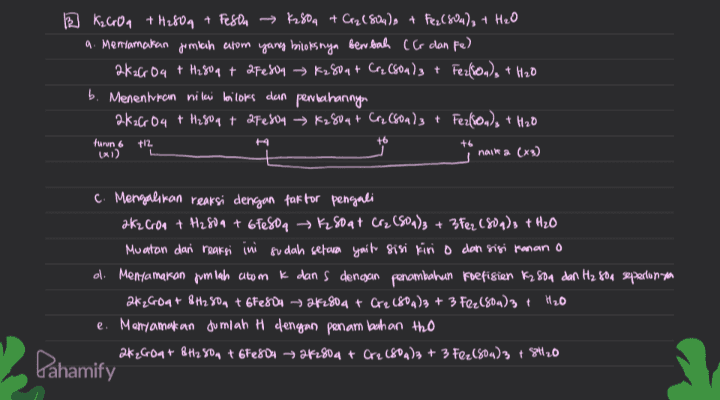 2 K₂CrO₄ + H₂SO₄ + FeSO₄ → K₂SO₄ + Cr₂(SO₄)₃ + Fe₂(SO₄)₃ + H₂O
a. Menyamakan jumlah atom yang biloksnya berubah (Cr dan Fe)
2K₂CrO₄ + H₂SO₄ + 2FeSO₄ → K₂SO₄ + Cr₂(SO₄)₃ + Fe₂(SO₄)₃ + H₂O
b. Menentukan nilai biloks dan perubahannya
2K₂CrO₄ + H₂SO₄ + 2FeSO₄ → K₂SO₄ + Cr₂(SO₄)₃ + Fe₂(SO₄)₃ + H₂O
turun 6 +12 +4 +6 +6
(x1) naik 2 (x3)
c. Mengalikan reaksi dengan faktor pengali
2K₂CrO₄ + H₂SO₄ + 6FeSO₄ → K₂SO₄ + Cr₂(SO₄)₃ + 3Fe₂(SO₄)₃ + H₂O
Muatan dari reaksi ini sudah setara yaitu sisi kiri 0 dan sisi kanan 0
d. Menyamakan jumlah atom K dan S dengan penambahan koefisien K₂SO₄ dan H₂SO₄ seperlunya
2K₂CrO₄ + 8H₂SO₄ + 6FeSO₄ → 2K₂SO₄ + Cr₂(SO₄)₃ + 3Fe₂(SO₄)₃ + H₂O
e. Menyamakan Jumlah H dengan penambahan H₂O
2K₂CrO₄ + 8H₂SO₄ + 6FeSO₄ → 2K₂SO₄ + Cr₂(SO₄)₃ + 3Fe₂(SO₄)₃ + 8H₂O
Pahamify